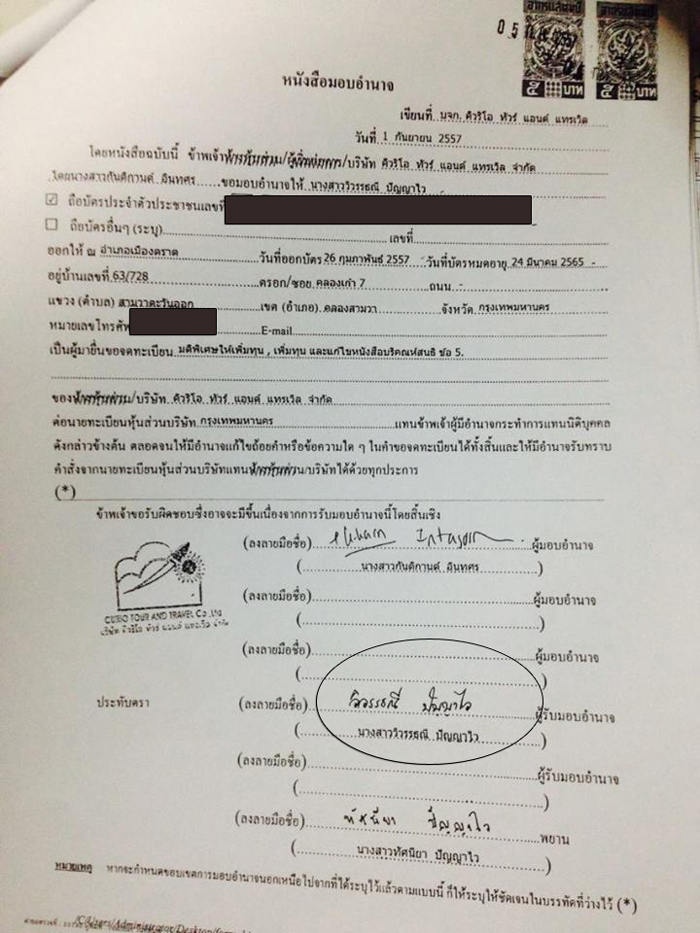 ๕ บาท ๕ บาท
หนังสือมอบอำนาจ
เขียนที่ บจก. คิวริโอ ทัวร์ แอนด์ แทรเวิล
วันที่ 1 กันยายน 2557
โดยหนังสือฉบับนี้ ข้าพเจ้าห้างหุ้นส่วน/ผู้เริ่มก่อการ/บริษัท คิวริโอ ทัวร์ แอนด์ แทรเวิล จำกัด
โดยนางสาวกันติกานต์ อินทศร ขอมอบอำนาจให้ นางสาววิวรรธณี ปัญญาไว
☑ ถือบัตรประจำตัวประชาชนเลขที่
☐ ถือบัตรอื่นๆ (ระบุ) เลขที่
ออกให้ ณ อำเภอเมืองตราด วันที่ออกบัตร 26 กุมภาพันธ์ 2557 วันที่บัตรหมดอายุ 24 มีนาคม 2565 -
อยู่บ้านเลขที่ 63/728 ตรอก/ซอย คลองเก่า 7 ถนน -
แขวง (ตำบล) สามวาตะวันออก เขต (อำเภอ) คลองสามวา จังหวัด กรุงเทพมหานคร
หมายเลขโทรศัพ E-mail
เป็นผู้มายื่นขอจดทะเบียน มติพิเศษให้เพิ่มทุน , เพิ่มทุน และแก้ไขหนังสือบริคณห์สนธิ ข้อ 5.
ของห้างหุ้นส่วน/บริษัท คิวริโอ ทัวร์ แอนด์ แทรเวิล จำกัด
ต่อนายทะเบียนหุ้นส่วนบริษัท กรุงเทพมหานคร แทนข้าพเจ้าผู้มีอำนาจกระทำการแทนนิติบุคคล
ดังกล่าวข้างต้น ตลอดจนให้มีอำนาจแก้ไขถ้อยคำหรือข้อความใด ๆ ในคำขอจดทะเบียนได้ทั้งสิ้นและให้มีอำนาจรับทราบ
คำสั่งจากนายทะเบียนหุ้นส่วนบริษัทแทนห้างหุ้นส่วน/บริษัทได้ด้วยทุกประการ
(*)
ข้าพเจ้าขอรับผิดชอบซึ่งอาจจะมีขึ้นเนื่องจากการรับมอบอำนาจนี้โดยสิ้นเชิง
(ลงลายมือชื่อ) ผู้มอบอำนาจ
(นางสาวกันติกานต์ อินทศร)
CURIO TOUR AND TRAVEL Co.,Ltd
บริษัท คิวริโอ ทัวร์ แอนด์ แทรเวิล จำกัด
(ลงลายมือชื่อ) ผู้มอบอำนาจ
( )
(ลงลายมือชื่อ) ผู้มอบอำนาจ
( )
ประทับตรา (ลงลายมือชื่อ) วิวรรธณี ปัญญาไว ผู้รับมอบอำนาจ
(นางสาววิวรรธณี ปัญญาไว)
(ลงลายมือชื่อ) ผู้รับมอบอำนาจ
( )
(ลงลายมือชื่อ) ทัศนียา ปัญญาไว พยาน
(นางสาวทัศนียา ปัญญาไว)
หมายเหตุ หากจะกำหนดขอบเขตการมอบอำนาจนอกเหนือไปจากที่ได้ระบุไว้แล้วตามแบบนี้ ก็ให้ระบุให้ชัดเจนในบรรทัดที่ว่างไว้ (*)
/C/Users/Administrator/Desktop/